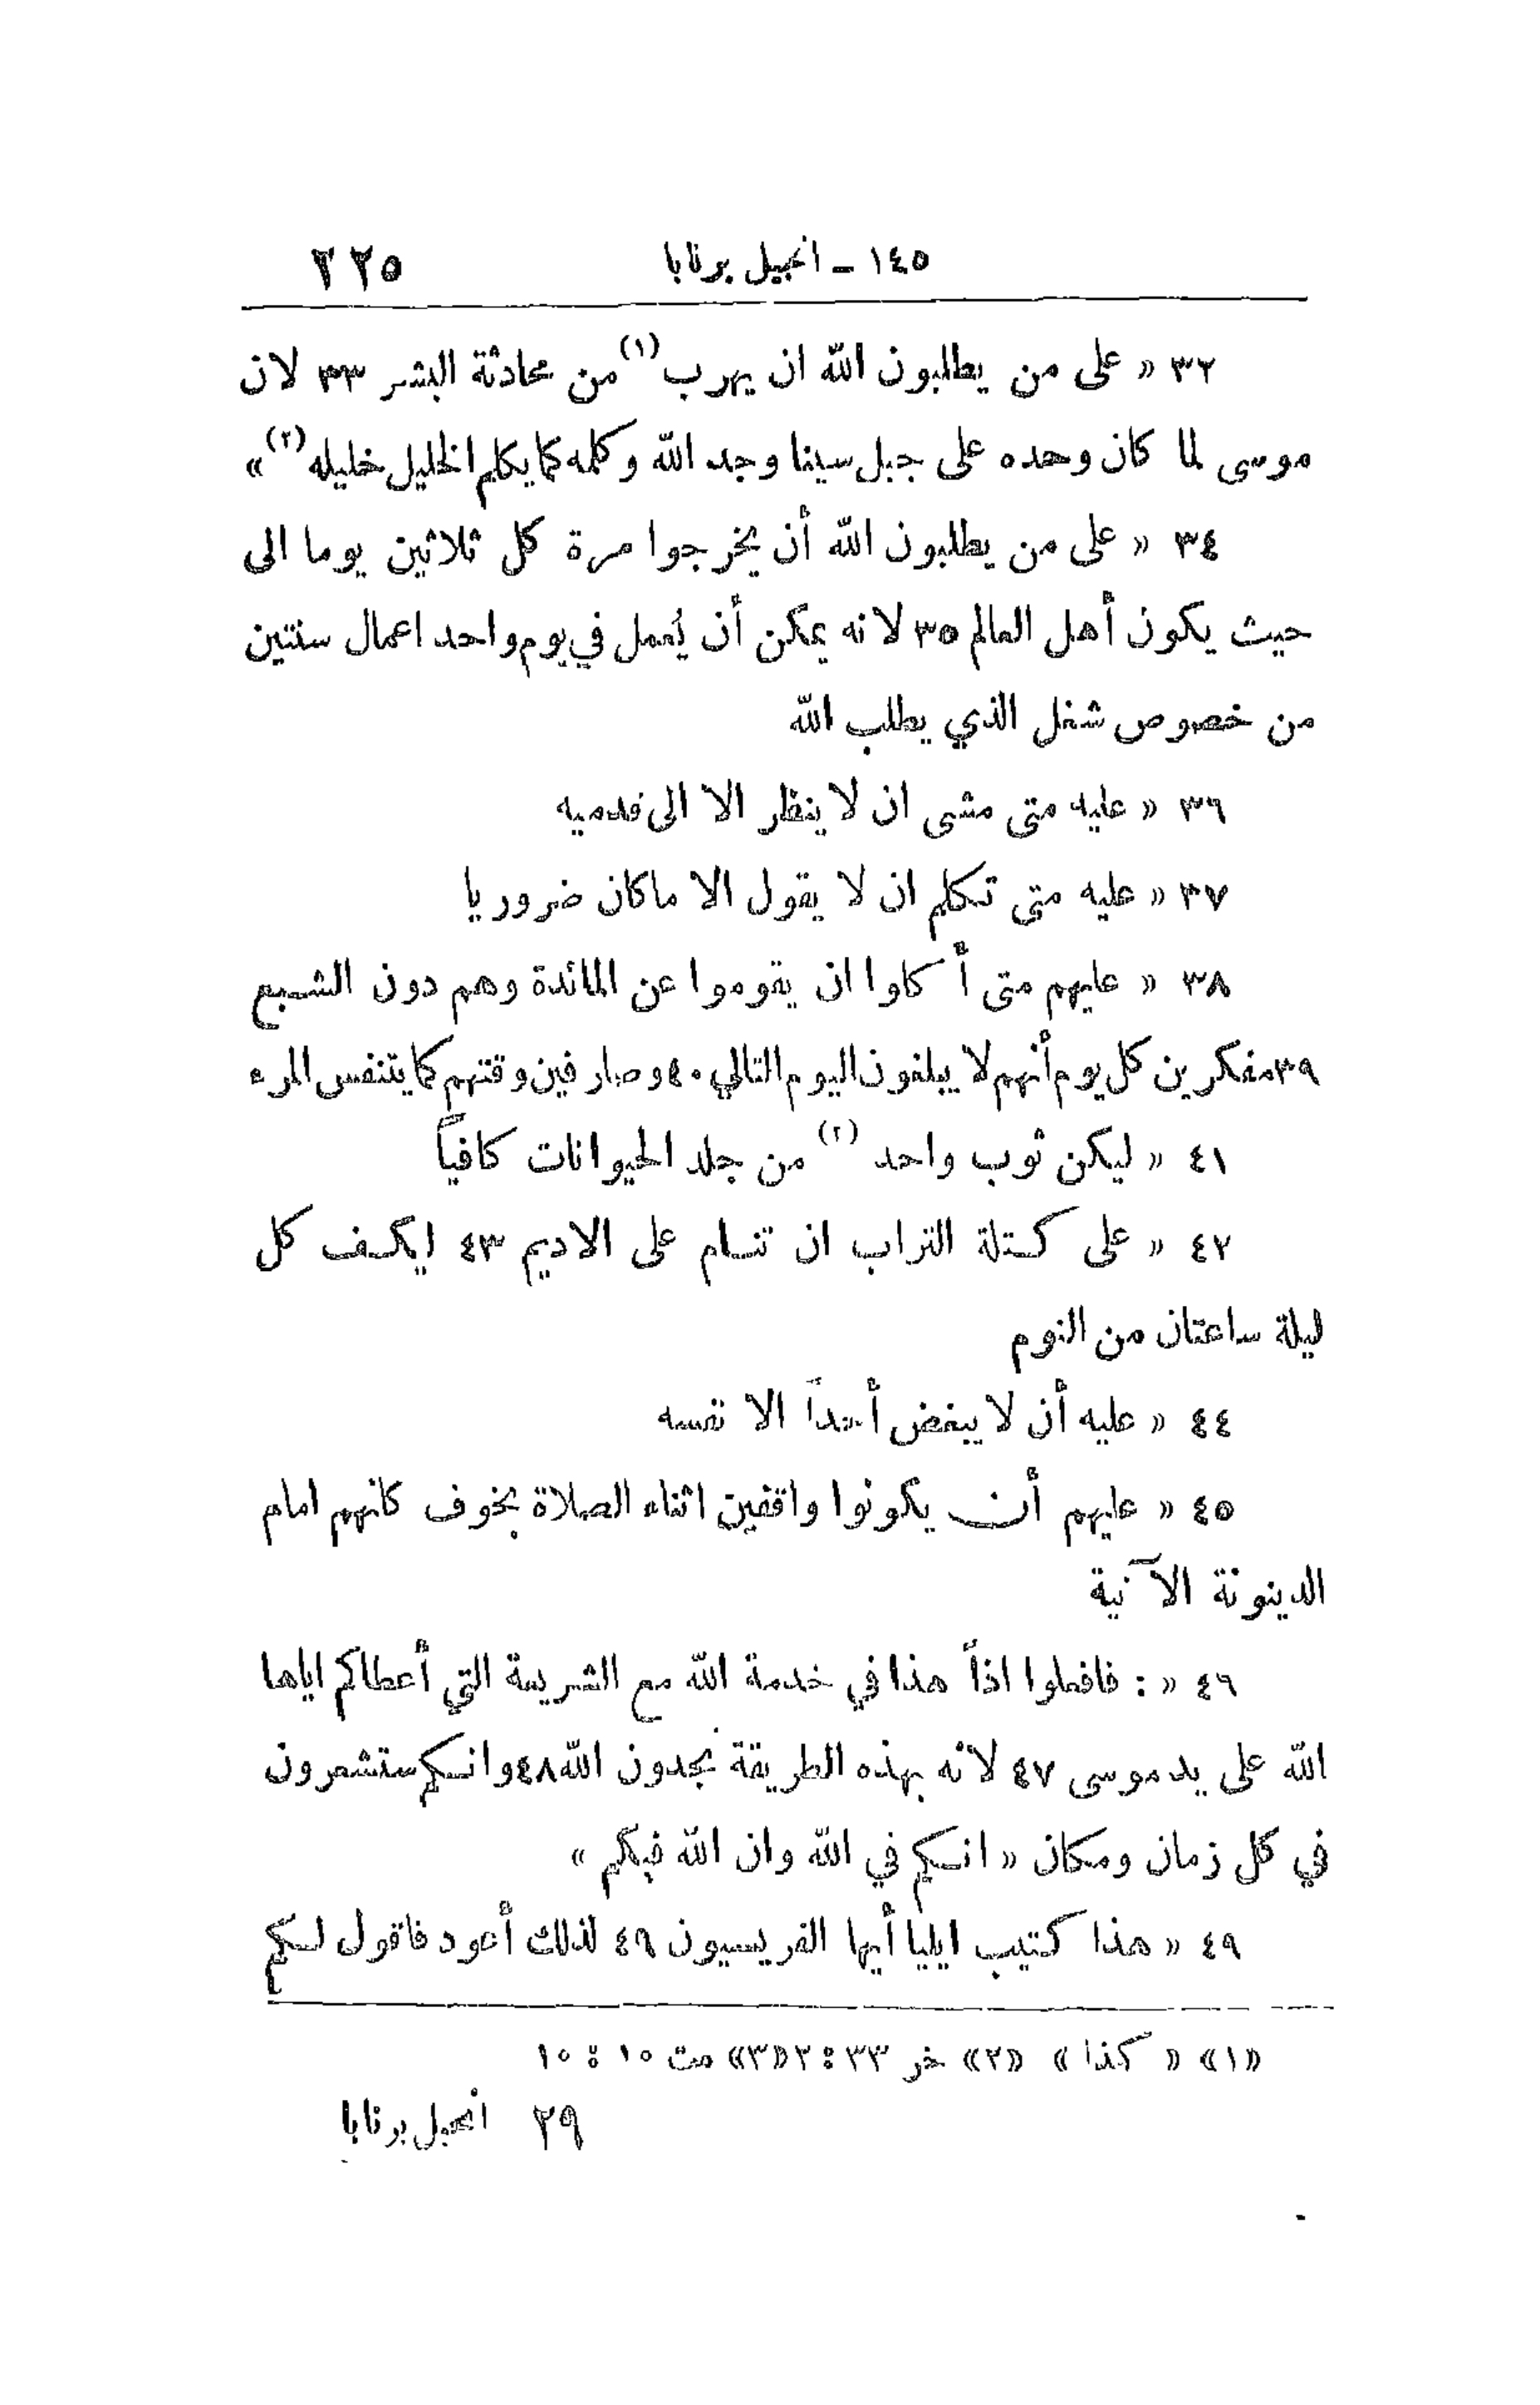 ١٤٥ ـ انجيل برنابا ٢٢٥
٣٢ « على من يطلبون الله ان يهرب (١) من محادثة البشر ٣٣ لان
موسى لما كان وحده على جبل سينا وجد الله وكلمه كما يكلم الخليل خليله (٢) »
٣٤ « على من يطلبون الله أن يخرجوا مرة كل ثلاثين يوما الى
حيث يكون أهل العالم ٣٥ لانه يمكن أن يُعمل في يوم واحد اعمال سنتين
من خصوص شغل الذي يطلب الله
٣٦ « عليه متى مشى ان لا ينظر الا الى قدميه
٣٧ « عليه متى تكلم ان لا يقول الا ماكان ضروريا
٣٨ « عليهم متى أكلوا ان يقوموا عن المائدة وهم دون الشبع
٣٩ مفكرين كل يوم أنهم لا يبلغون اليوم التالي ٤٠ وصارفين وقتهم كما يتنفس المرء
٤١ « ليكن ثوب واحد (٢) من جلد الحيوانات كافياً
٤٢ « على كتلة التراب ان تنام على الاديم ٤٣ ليكف كل
ليلة ساعتان من النوم
٤٤ « عليه أن لا يبغض أحداً الا نفسه
٤٥ « عليهم أن يكونوا واقفين اثناء الصلاة بخوف كانهم امام
الدينونة الآتية
٤٦ « : فافعلوا اذاً هذا في خدمة الله مع الشريعة التي أعطاكم اياها
الله على يد موسى ٤٧ لأنه بهذه الطريقة تجدون الله ٤٨ وانكم ستشعرون
في كل زمان ومكان « انكم في الله وان الله فيكم »
٤٩ « هذا كتيب ايليا أيها الفريسيون ٤٩ لذلك أعود فاقول لكم
«١» « كذا » «٢» خر ٣٣ : ٢ «٣» مت ١٠ : ١٠
٢٩ انجيل برنابا